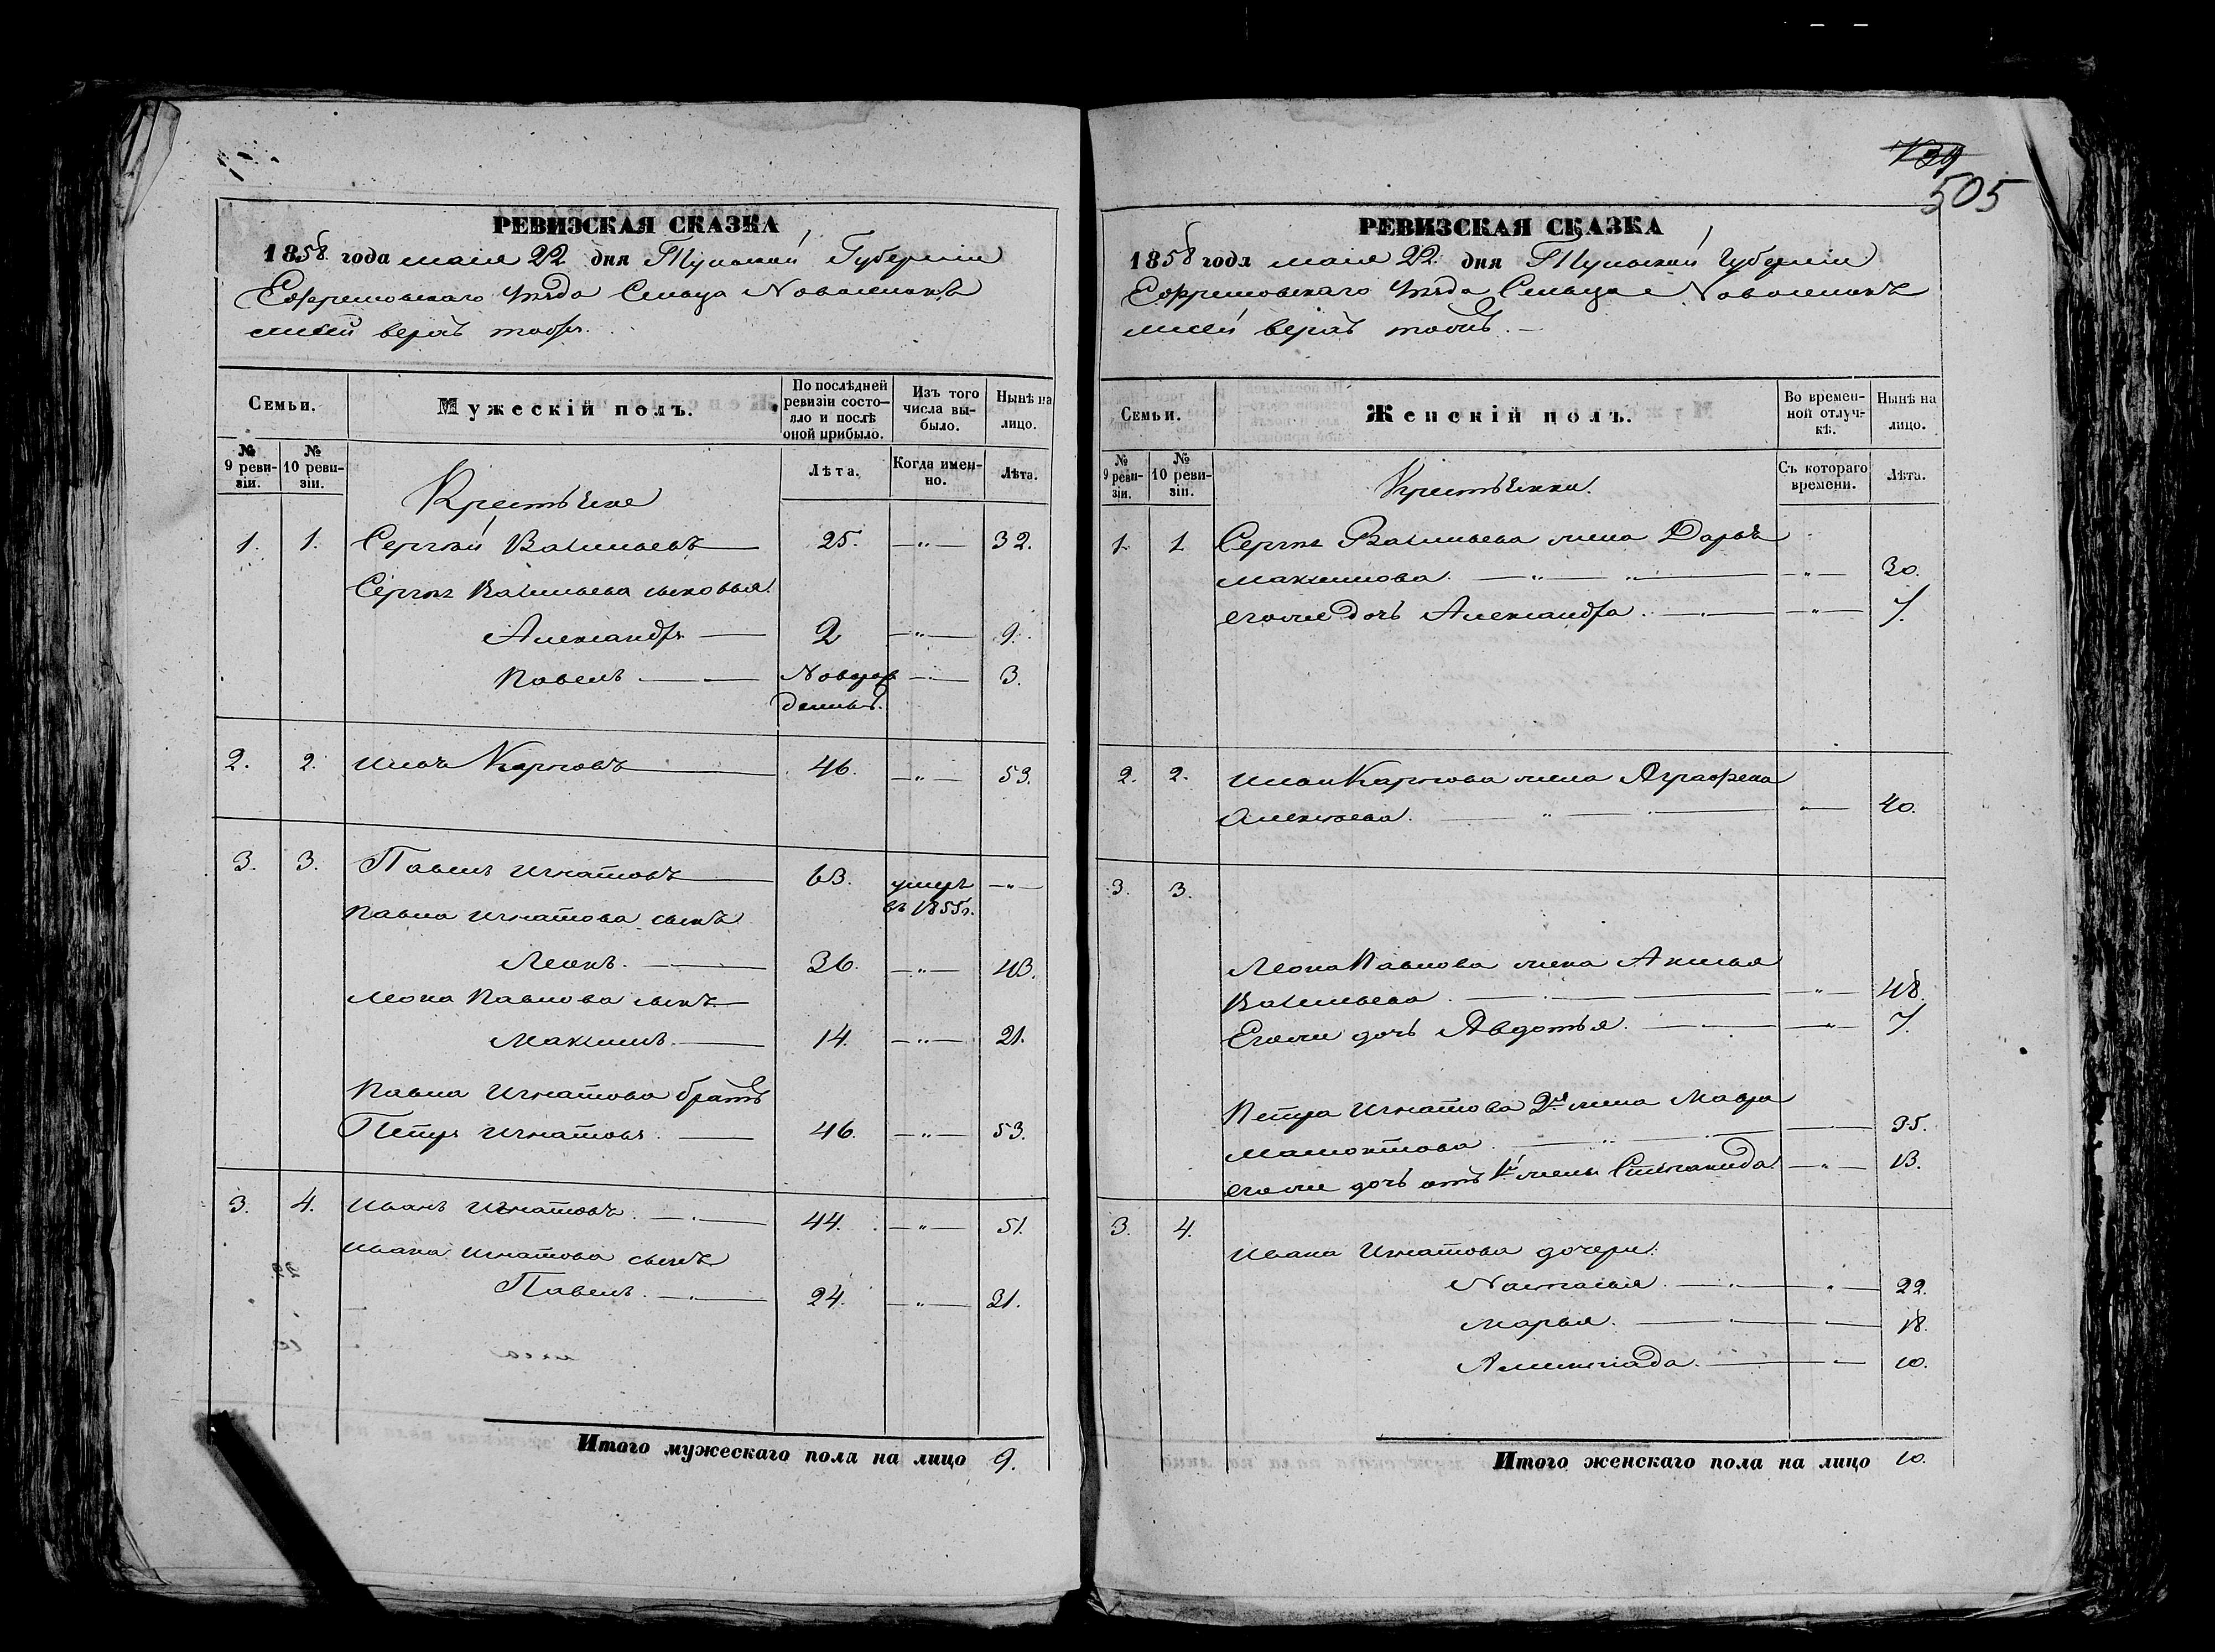 РЕВИЗСКАЯ СКАЗКА
1858 года маія 22 дня Тульской Губерніи
Ефремовскаго Уѣзда Сельца
Семьи.
Мужескій полъ.
По послѣдней ревизіи состояло и послѣ оной прибыло.
Изъ того числа выбыло.
Нынѣ на лицо.
№ 9 ревизіи.
№ 10 ревизіи.
Лѣта.
Когда именно.
Лѣта.
Крестьяне
1. 1. Сергѣй Васильевъ 25. —"— 32.
Сергѣя Васильева сыновья
Александръ 2 —"— 9.
Павелъ Новорож — 3.
денный.
2. 2. Карповъ 46. —"— 53.
3. 3. Павелъ Игнатовъ 63. умеръ —"—
въ 1855 г.
Павла Игнатова сынъ
Леонъ. 36. —"— 43.
Леона Павлова сынъ
Максимъ. 14. —"— 21.
Павла Игнатова братъ
Петръ Игнатовъ. 46. —"— 53.
3. 4. Иванъ Игнатовъ. 44. —"— 51.
Ивана Игнатова сынъ
Павелъ. 24. —"— 31.
Итого мужескаго пола на лицо 9.
139
505
РЕВИЗСКАЯ СКАЗКА
1858 года маія 22 дня Тульской Губерніи
Ефремовскаго Уѣзда Сельца
Семьи.
Женскій полъ.
Во временной отлучкѣ.
Нынѣ на лицо.
№ 9 ревизіи.
№ 10 ревизіи.
Съ котораго времени.
Лѣта.
Крестьянки.
1. 1 Сергѣя Васильева жена Дарья
Максимова. —"— 30.
его же дочь Александра. —"— 7.
2. 2. Карпова жена Аграфена
Алексѣева. —"— 40.
3. 3.
Леона Павлова жена Акилина
Васильева. —"— 48.
Его же дочь Авдотья. —"— 7.
Петра Игнатова 2я жена Мавра
Мамонтова. — 35.
его же дочь отъ 1й жены Степанида —"— 13.
3. 4. Ивана Игнатова дочери:
Наталья. —"— 22.
Марья. — 18.
10.
Итого женскаго пола на лицо 10.